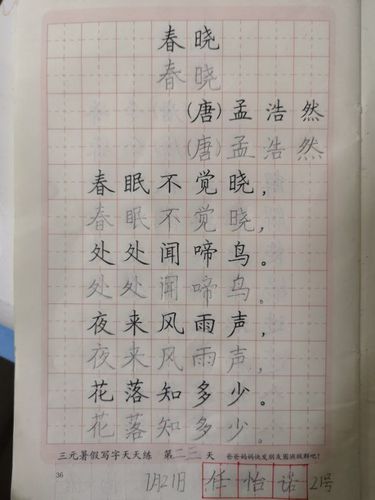 春晓
春晓
(唐)孟浩然
(唐)孟浩然
春眠不觉晓，
春眠不觉晓，
处处闻啼鸟。
处处闻啼鸟。
夜来风雨声，
夜来风雨声，
花落知多少。
花落知多少。
三元暑假写字天天练 第二三天 爸爸妈妈快发朋友圈班级群吧!
36
7月21日 任怡诺 21号